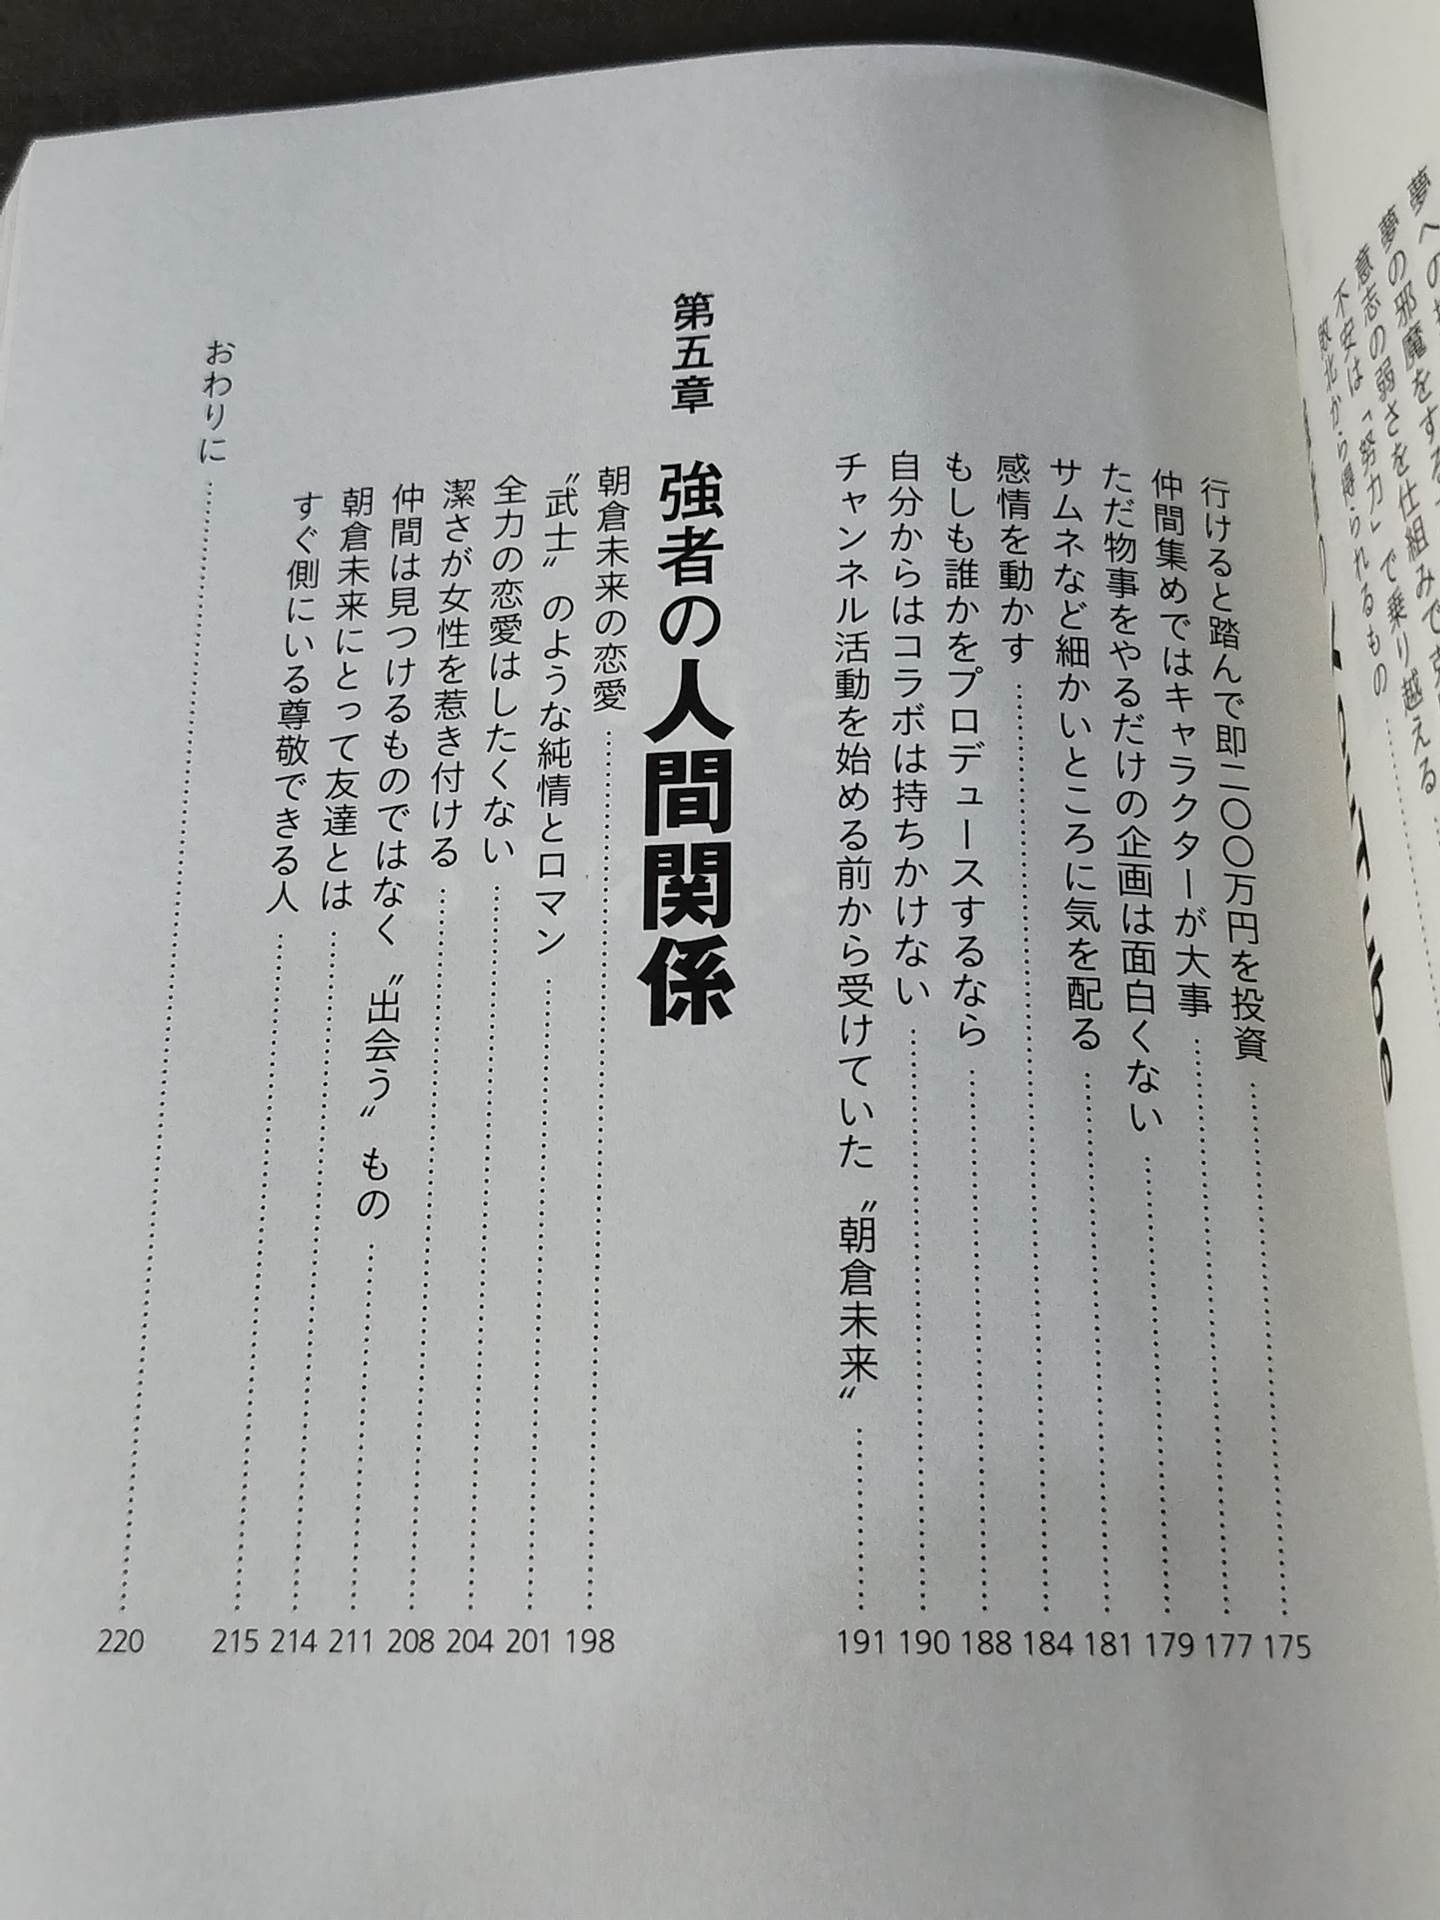 夢の邪魔をする
意志の弱さを仕組みで
不安は「努力」で乗り越える
敗北から得られるもの
行けると踏んで即二〇〇万円を投資 175
仲間集めではキャラクターが大事 177
ただ物事をやるだけの企画は面白くない 179
サムネなど細かいところに気を配る 181
感情を動かす 184
もしも誰かをプロデュースするなら 188
自分からはコラボは持ちかけない 190
チャンネル活動を始める前から受けていた〝朝倉未来〟 191
第五章 強者の人間関係
朝倉未来の恋愛 198
〝武士〟のような純情とロマン 201
全力の恋愛はしたくない 204
潔さが女性を惹き付ける 208
仲間は見つけるものではなく〝出会う〟もの 211
朝倉未来にとって友達とは 214
すぐ側にいる尊敬できる人 215
おわりに 220